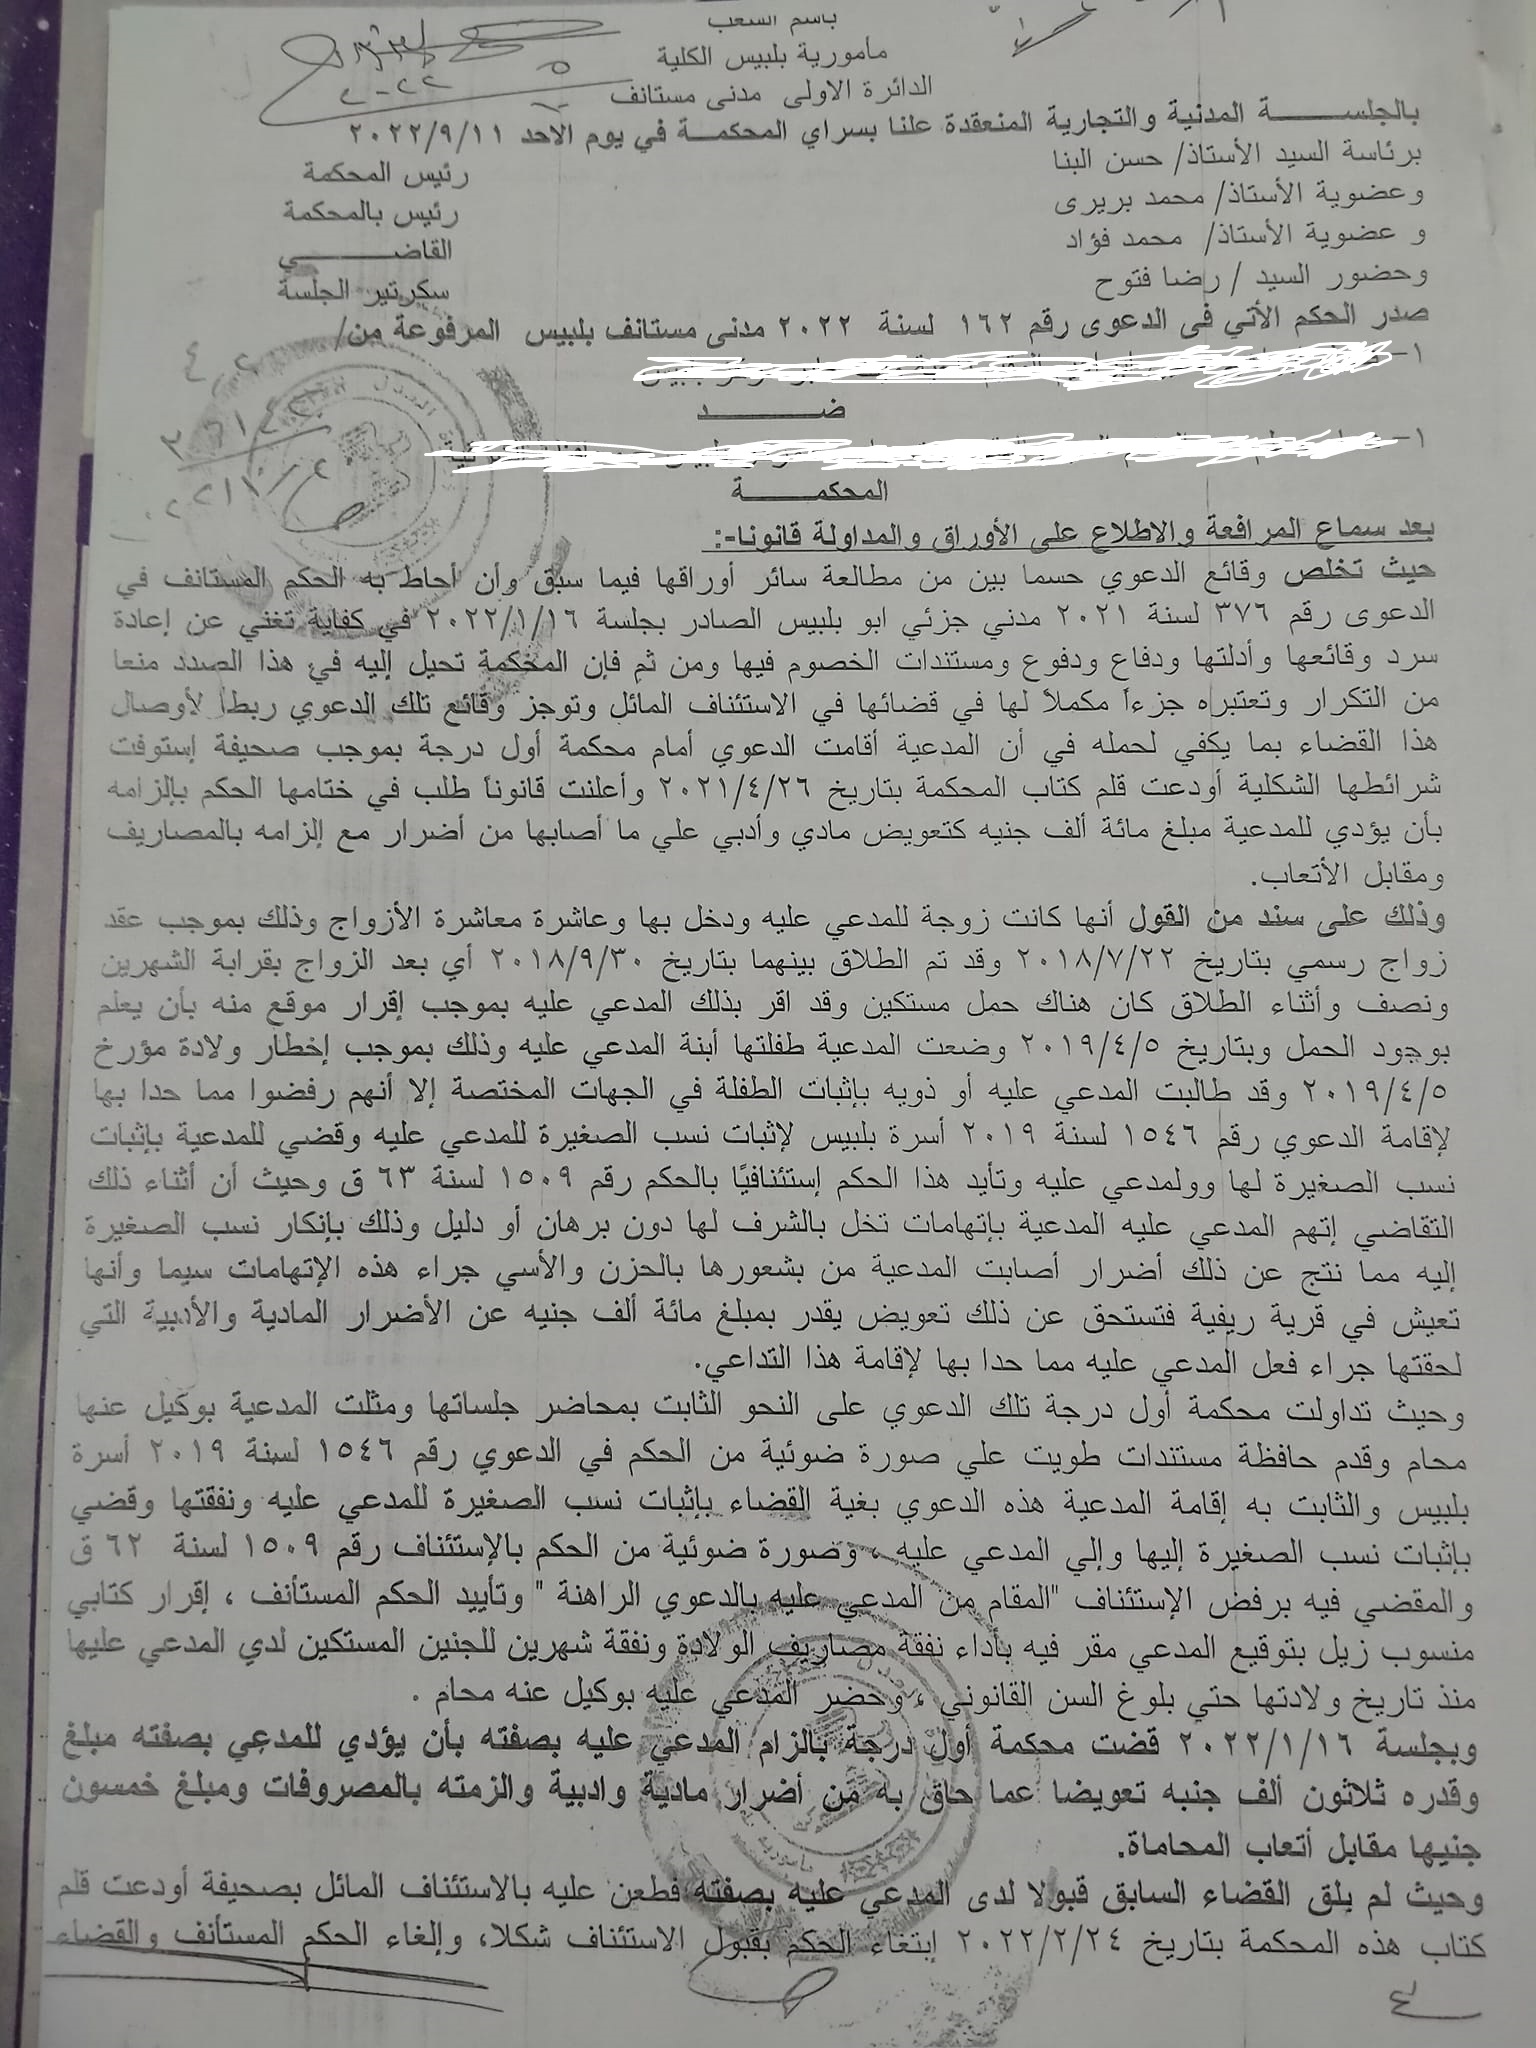 باسم الشعب
مأمورية بلبيس الكلية
الدائرة الاولى مدنى مستانف
بالجلســـــة المدنية والتجارية المنعقدة علنا بسراي المحكمــة في يوم الاحد ٢٠٢٢/٩/١١
برئاسة السيد الأستاذ/ حسن البنا رئيس المحكمة
وعضوية الأستاذ/ محمد بريرى رئيس بالمحكمة
و عضوية الأستاذ/ محمد فؤاد القاضــــــي
وحضور السيد / رضا فتوح سكرتير الجلسة
صدر الحكم الأتي فى الدعوى رقم ١٦٢ لسنة ٢٠٢٢ مدنى مستانف بلبيس المرفوعة من/
١-
ضــــــد
١-
المحكمــــــة
بعد سماع المرافعة والاطلاع على الأوراق والمداولة قانونا-:
حيث تخلص وقائع الدعوي حسما بين من مطالعة سائر أوراقها فيما سبق وأن أحاط به الحكم المستانف في
الدعوى رقم ٣٧٦ لسنة ٢٠٢١ مدني جزئي ابو بلبيس الصادر بجلسة ٢٠٢٢/١/١٦ في كفاية تغني عن إعادة
سرد وقائعها وأدلتها ودفاع ودفوع ومستندات الخصوم فيها ومن ثم فإن المحكمة تحيل إليه في هذا الصدد منعا
من التكرار وتعتبره جزءاً مكملاً لها في قضائها في الاستئناف المائل وتوجز وقائع تلك الدعوي ربطا لأوصال
هذا القضاء بما يكفي لحمله في أن المدعية أقامت الدعوي أمام محكمة أول درجة بموجب صحيفة إستوفت
شرائطها الشكلية أودعت قلم كتاب المحكمة بتاريخ ٢٠٢١/٤/٢٦ وأعلنت قانوناً طلب في ختامها الحكم بإلزامه
بأن يؤدي للمدعية مبلغ مائة ألف جنيه كتعويض مادي وأدبي علي ما أصابها من أضرار مع إلزامه بالمصاريف
ومقابل الأتعاب.
وذلك على سند من القول أنها كانت زوجة للمدعي عليه ودخل بها وعاشرة معاشرة الأزواج وذلك بموجب عقد
زواج رسمي بتاريخ ٢٠١٨/٧/٢٢ وقد تم الطلاق بينهما بتاريخ ٢٠١٨/٩/٣٠ أي بعد الزواج بقرابة الشهرين
ونصف وأثناء الطلاق كان هناك حمل مستكين وقد اقر بذلك المدعي عليه بموجب إقرار موقع منه بأن يعلم
بوجود الحمل وبتاريخ ٢٠١٩/٤/٥ وضعت المدعية طفلتها أبنة المدعي عليه وذلك بموجب إخطار ولادة مؤرخ
٢٠١٩/٤/٥ وقد طالبت المدعي عليه أو ذويه بإثبات الطفلة في الجهات المختصة إلا أنهم رفضوا مما حدا بها
لإقامة الدعوي رقم ١٥٤٦ لسنة ٢٠١٩ أسرة بلبيس لإثبات نسب الصغيرة للمدعي عليه وقضي للمدعية بإثبات
نسب الصغيرة لها وولمدعي عليه وتأيد هذا الحكم إستئنافيًا بالحكم رقم ١٥٠٩ لسنة ٦٣ ق وحيث أن أثناء ذلك
التقاضي إتهم المدعي عليه المدعية بإتهامات تخل بالشرف لها دون برهان أو دليل وذلك بإنكار نسب الصغيرة
إليه مما نتج عن ذلك أضرار أصابت المدعية من بشعورها بالحزن والأسي جراء هذه الإتهامات سيما وأنها
تعيش في قرية ريفية فتستحق عن ذلك تعويض يقدر بمبلغ مائة ألف جنيه عن الأضرار المادية والأدبية التي
لحقتها جراء فعل المدعي عليه مما حدا بها لإقامة هذا التداعي.
وحيث تداولت محكمة أول درجة تلك الدعوي على النحو الثابت بمحاضر جلساتها ومثلت المدعية بوكيل عنها
محام وقدم حافظة مستندات طويت علي صورة ضوئية من الحكم في الدعوي رقم ١٥٤٦ لسنة ٢٠١٩ أسرة
بلبيس والثابت به إقامة المدعية هذه الدعوي بغية القضاء بإثبات نسب الصغيرة للمدعي عليه ونفقتها وقضي
بإثبات نسب الصغيرة إليها وإلي المدعي عليه ، وصورة ضوئية من الحكم بالإستئناف رقم ١٥٠٩ لسنة ٦٢ ق
والمقضي فيه برفض الإستئناف "المقام من المدعي عليه بالدعوي الراهنة " وتأييد الحكم المستأنف ، إقرار كتابي
منسوب زيل بتوقيع المدعي مقر فيه بأداء نفقة مصاريف الولادة ونفقة شهرين للجنين المستكين لدي المدعي عليها
منذ تاريخ ولادتها حتي بلوغ السن القانوني ، وحضر المدعي عليه بوكيل عنه محام .
وبجلسة ٢٠٢٢/١/١٦ قضت محكمة أول درجة بالزام المدعي عليه بصفته بأن يؤدي للمدعي بصفته مبلغ
وقدره ثلاثون ألف جنبه تعويضا عما حاق به من أضرار مادية وادبية والزمته بالمصروفات ومبلغ خمسون
جنيها مقابل أتعاب المحاماة.
وحيث لم يلق القضاء السابق قبولا لدى المدعي عليه بصفته فطعن عليه بالاستئناف المائل بصحيفة أودعت قلم
كتاب هذه المحكمة بتاريخ ٢٠٢٢/٢/٢٤ إبتغاء الحكم بقبول الاستئناف شكلا، وإلغاء الحكم المستأنف والقضاء